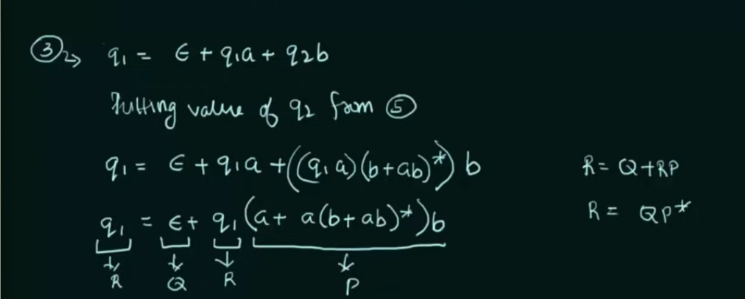 ③↳ q₁ = ε + q₁a + q₂b
Putting value of q₂ from ⑤
q₁ = ε + q₁a + ((q₁a)(b+ab)*) b
R = Q+RP
q₁ = ε + q₁ (a + a(b+ab)*)b
R = QP*
R Q R P